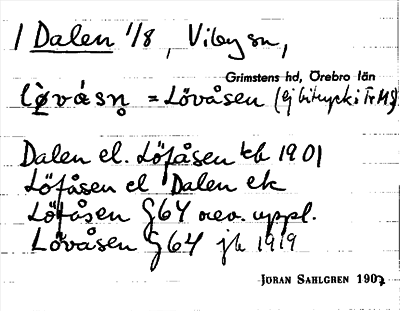 1 Dalen 1/8, Viby sn,
Grimstens hd, Örebro län
lö̀vǻsn̥ = Lövåsen (ej uttryck i FrHS)
Dalen el. Löfåsen kb 1901
Löfåsen el Dalen ek
Löfåsen G64 rev. uppl.
Lövåsen G64 jb 1919
JÖRAN SAHLGREN 1907